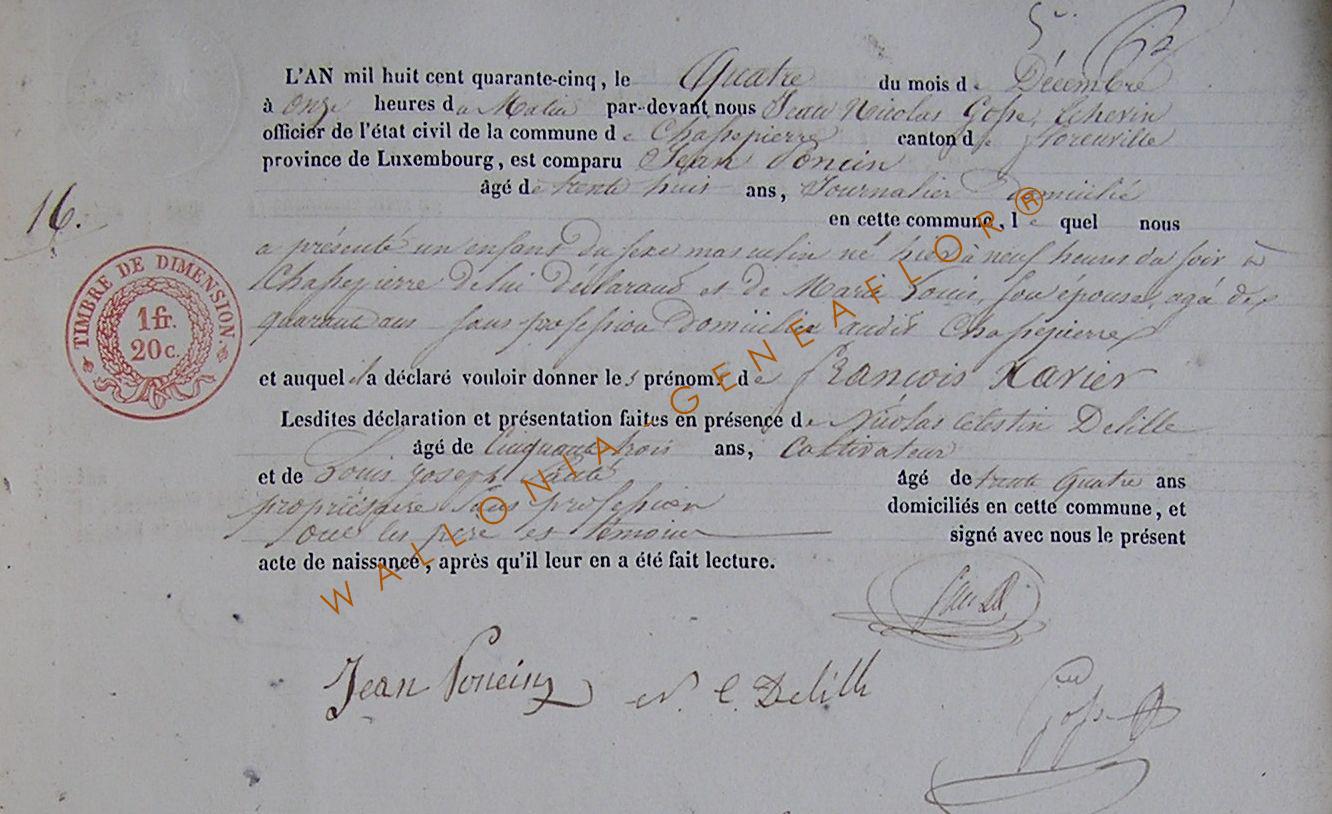 L'AN mil huit cent quarante-cinq, le Quatre du mois de Décembre
à onze heures du Matin par-devant nous Jean Nicolas Gosse, Echevin
officier de l'état civil de la commune de Chassepierre canton de florenville
province de Luxembourg, est comparu Jean Poncin
âgé de trente huit ans, Journalier domicilié
16.
en cette commune, lequel nous
a présenté un enfant du sexe masculin né hier à neuf heures du soir à
Chassepierre de lui déclarant et de Marie Louis, son épouse, agée de
quarante ans sans profession domiciliée audit Chassepierre
TIMBRE DE DIMENSION.
1 fr.
20 c.
et auquel il a déclaré vouloir donner les prénoms de françois Xavier
Lesdites déclaration et présentation faites en présence de Nicolas Celestin Delille
âgé de Cinquante trois ans, Cultivateur
et de Louis Joseph âgé de trente Quatre ans
propriétaire sans profession domiciliés en cette commune, et
les pere et témoins signé avec nous le présent
acte de naissance, après qu'il leur en a été fait lecture.
Jean Poncin N. C. Delille
Gosse
WALLONIA - GENEAFLOR ®